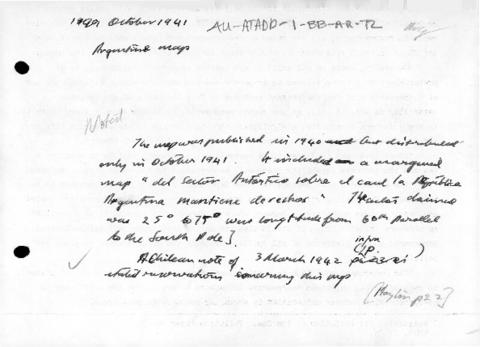 October 1941 AU-ATADD-1-BB-AR-72
Argentine map
Noted
The map was published in 1940 but distributed
only in October 1941. It included a marginal
map "del Sector Antártico sobre el cual la República
Argentina mantiene derechos" The sector claimed
was 25° to 75° west longitude from 60th parallel
to the South Pole].
infra
A Chilean note of 3 March 1942 )
stated reservations concerning this map
[Hayton p 22]